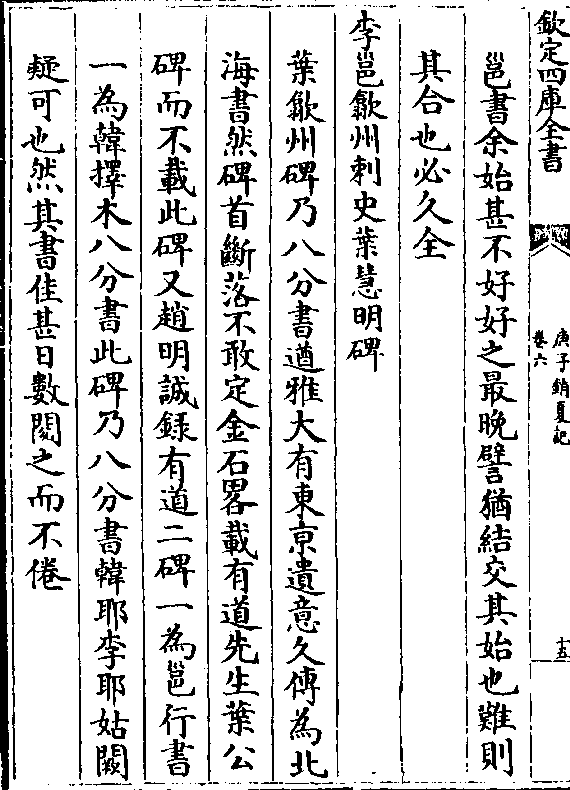 欽定四庫全書
庚子銷夏記
卷六
十五
邕書余始甚不好好之最晩譬猶結交其始也難則
其合也必久全
李邕歙州刺史葉慧明碑
葉歙州碑乃八分書遒雅大有東京遺意久傳為北
海書然碑首斷落不敢定金石畧載有道先生葉公
碑而不載此碑又趙明誠錄有道二碑一為邕行書
一為韓擇木八分書此碑乃八分書韓耶李耶姑闕
疑可也然其書佳甚日數閱之而不倦